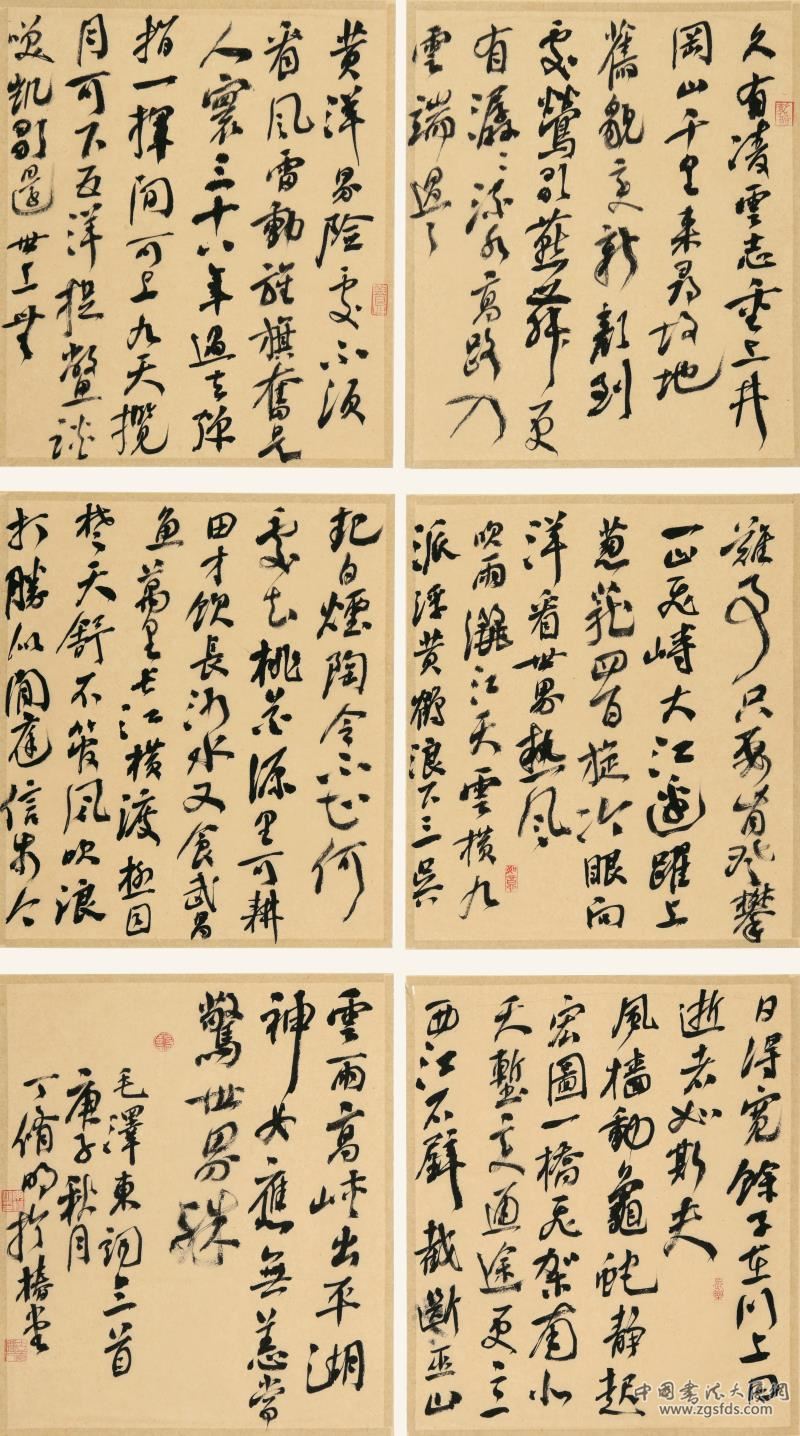 久有凌雲志重上井
岡山千里来尋故地
舊貌变新顏到
處鶯歌燕舞更
有潺〻流水高路入
雲端過了
黄洋界險處不須
看風雷動旌旗奮是
人寰三十八年過去弹
指一揮間可上九天攬
月可下五洋捉鱉談
笑凱歌還世上無
難事只要肯登攀
一山飛峙大江邊躍上
葱蘢四百旋冷眼向
洋看世界熱風
吹雨灑江天雲横九
派浮黄鶴浪下三吳
起白煙陶令不知何
處去桃花源里可耕
田才飲長沙水又食武昌
魚萬里长江横渡極目
楚天舒不管風吹浪
打勝似閒庭信步今
日得寬餘子在川上曰
逝者如斯夫
風檣動龜蛇静起
宏圖一橋飛架南北
天塹变通途更立
西江石壁截斷巫山
雲雨高峡出平湖
神女應無恙當
驚世界殊
毛澤東詞三首
庚子秋月
丁脩明於椿堂
中国书法大厦网
www.zgsfds.com